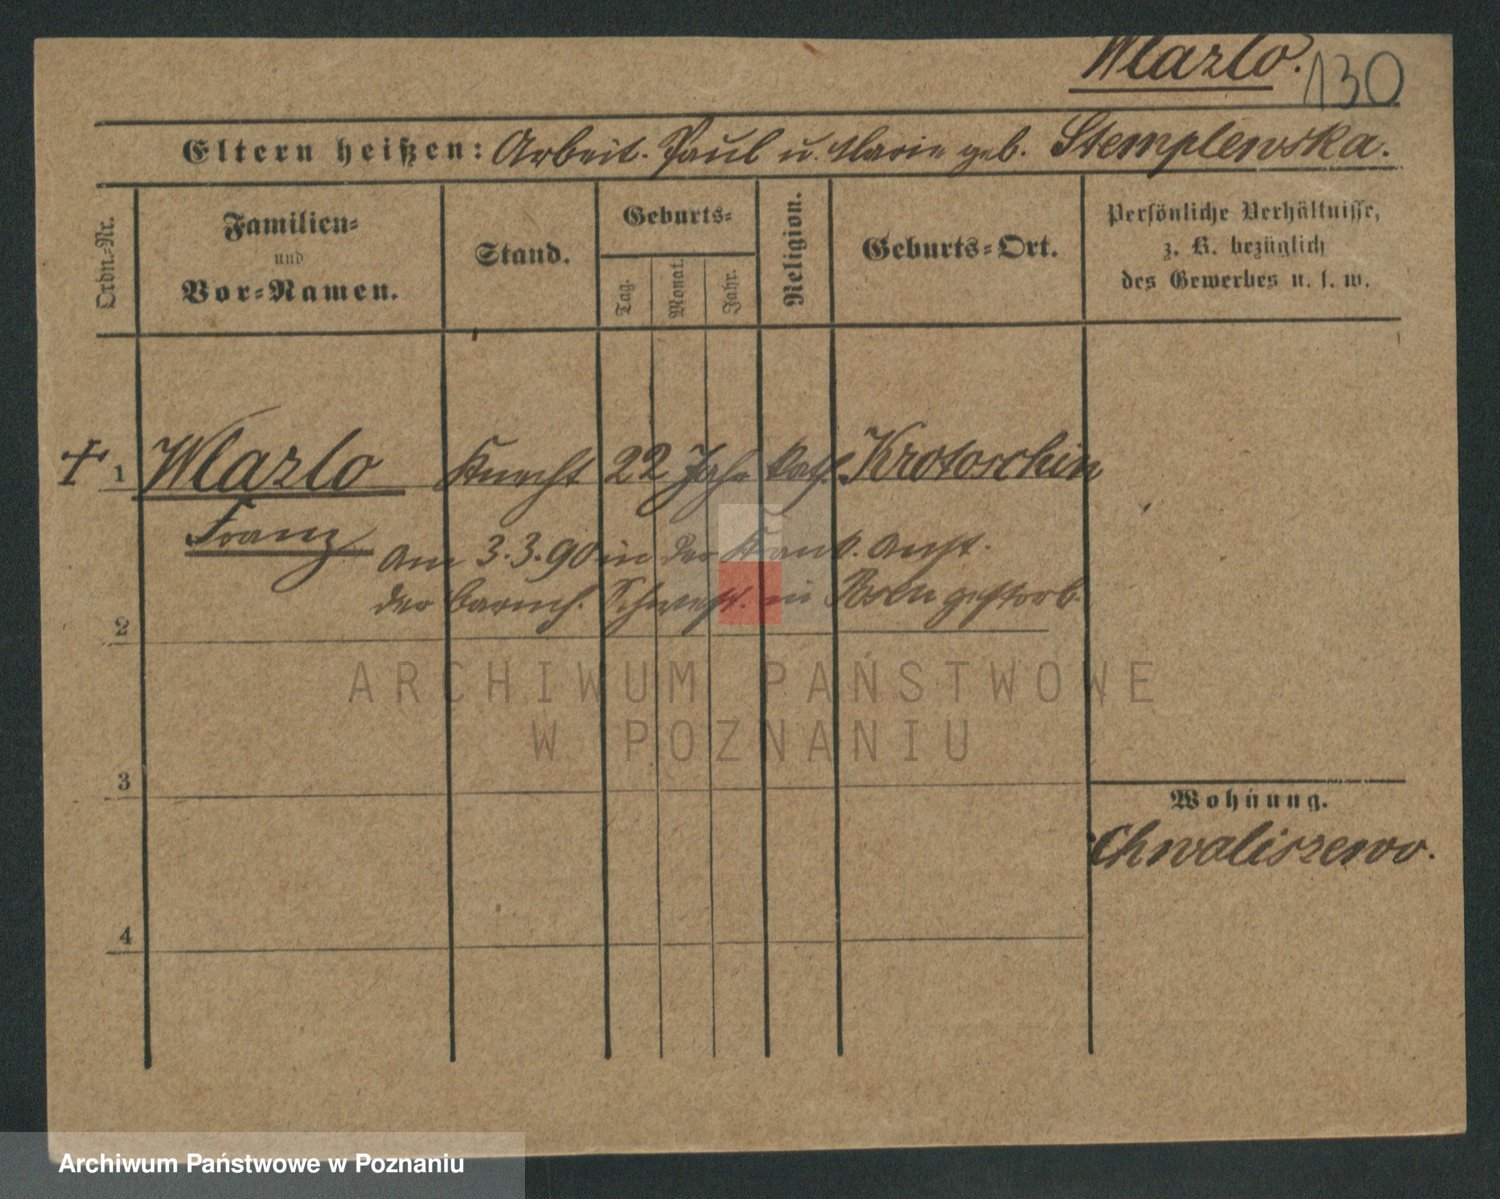 Wlazlo. 130
Eltern heißen: Arbeit. Paul u. Marie geb. Stemplewska.
Ordn.-Nr.
Familien-
und
Vor-Namen.
Stand.
Geburts-
Tag.
Monat.
Jahr.
Religion.
Geburts-Ort.
Persönliche Verhältnisse,
z. B. bezüglich
des Gewerbes u. s. w.
+ 1 Wlazlo Knecht 22 Jahr kath. Krotoschin
Franz
Am 3.3.90 in der Krank. Anst.
der barmh. Schwest. in Posen gestorb.
2
3
4
Wohnung.
Chwaliszewo.
ARCHIWUM PAŃSTWOWE
W POZNANIU
Archiwum Państwowe w Poznaniu